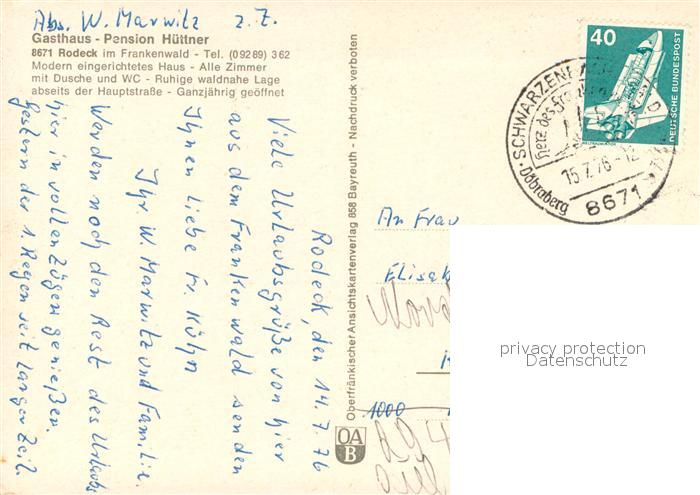 Abs. W. Marwitz z. Z.
Gasthaus - Pension Hüttner
8671 Rodeck im Frankenwald - Tel. (09289) 362
Modern eingerichtetes Haus - Alle Zimmer
mit Dusche und WC - Ruhige waldnahe Lage
abseits der Hauptstraße - Ganzjährig geöffnet
Rodeck, den 14.7.76
Viele Urlaubsgrüße von hier
aus dem Frankenwald senden
Ihnen liebe Fr. Kühn
Ihr W. Marwitz und Familie.
Werden noch den Rest des Urlaubs
hier in vollen Zügen genießen.
Gestern der 1. Regen seit langer Zeit.
Oberfränkischer Ansichtskartenverlag 858 Bayreuth - Nachdruck verboten
OA
B
40
DEUTSCHE BUNDESPOST
SCHWARZENBACH
Herz des Frankenwaldes
15.7.76-12
Döbraberg
8671
An Frau
Elisab
1000
privacy protection
Datenschutz